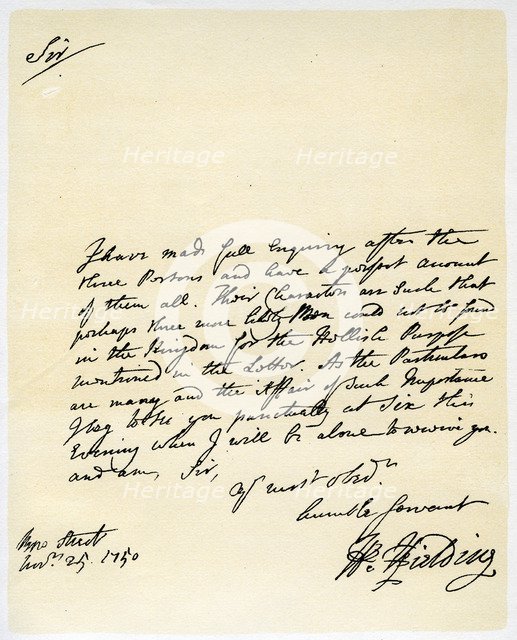 Sir
I have made full Enquiry after the
three Persons and have a perfect account
of them all. Their Characters are such that
perhaps three more likely Men could not be found
in the Kingdom for the Hellish Purpose
mentioned in the Letter. As the Particulars
are many and the Affair of such Importance
I beg to see you punctually at six this
Evening when I will be alone to receive you.
and am, Sir,
yr most obedt
humble Servant
Hy Fielding
Bow Street
Novr 25. 1750
Heritage Heritage
Heritage Heritage
Heritage Heritage